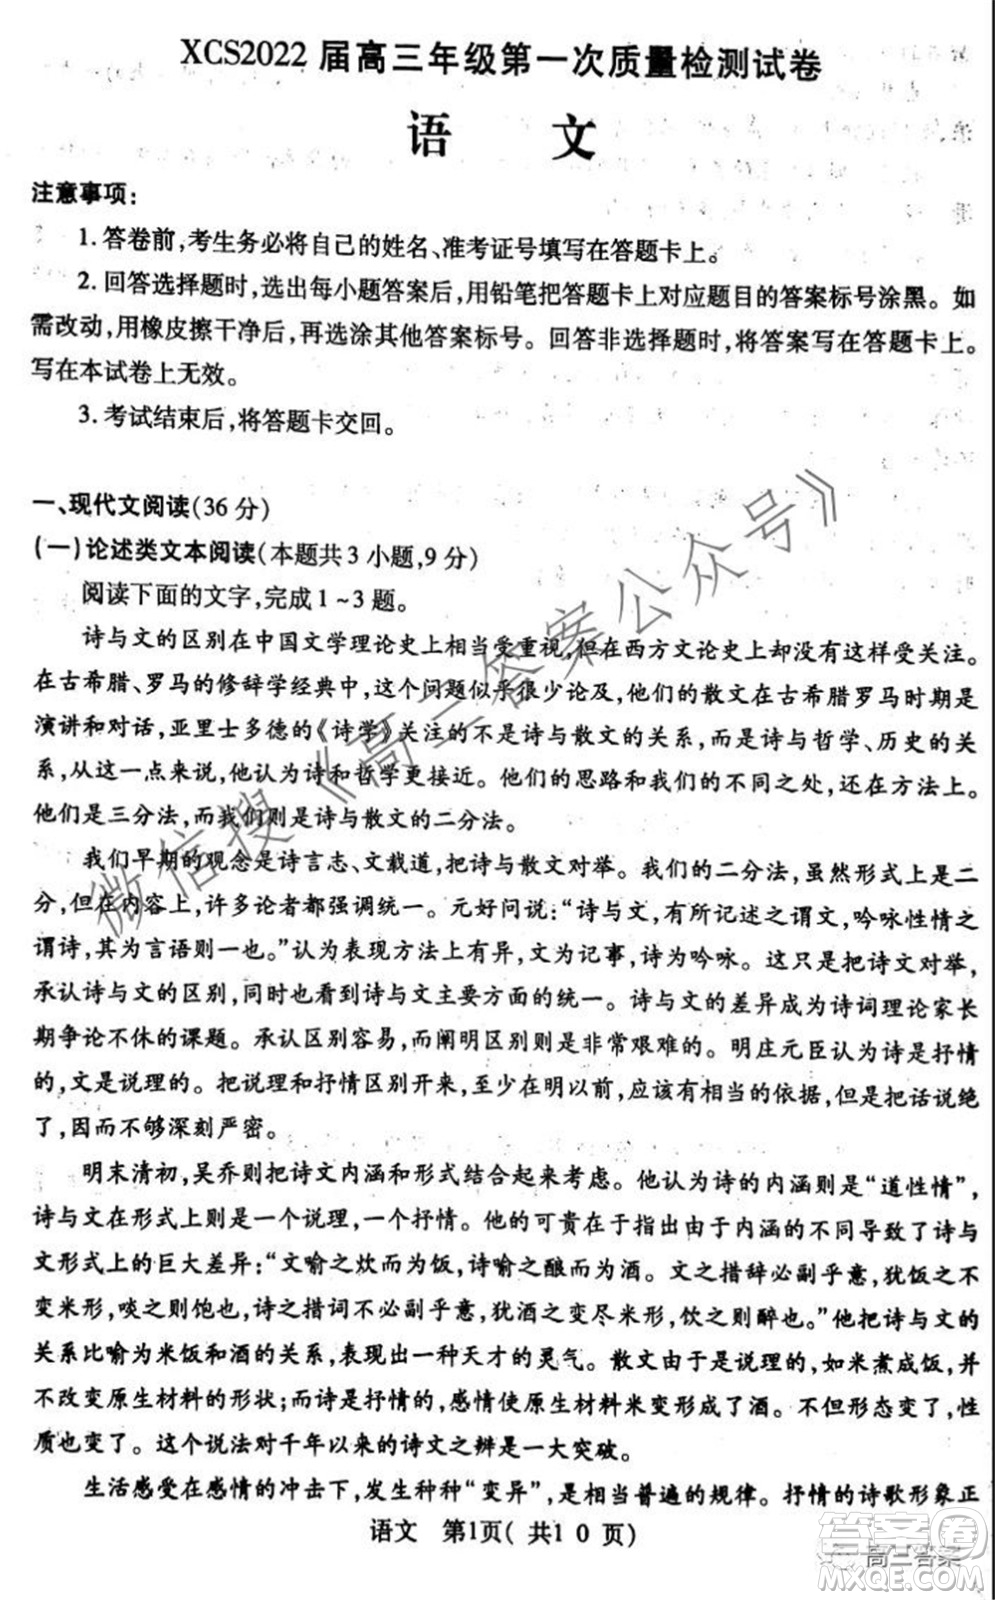 XCS2022届高三年级第一次质量检测试卷
语 文
注意事项:
1.答卷前,考生务必将自己的姓名、准考证号填写在答题卡上。
2.回答选择题时,选出每小题答案后,用铅笔把答题卡上对应题目的答案标号涂黑。如
需改动,用橡皮擦干净后,再选涂其他答案标号。回答非选择题时,将答案写在答题卡上。
写在本试卷上无效。
3.考试结束后,将答题卡交回。
一、现代文阅读(36分)
(一)论述类文本阅读(本题共3小题,9分)
阅读下面的文字,完成1~3题。
诗与文的区别在中国文学理论史上相当受重视,但在西方文论史上却没有这样受关注。
在古希腊、罗马的修辞学经典中,这个问题似乎很少论及,他们的散文在古希腊罗马时期是
演讲和对话,亚里士多德的《诗学》关注的不是诗与散文的关系,而是诗与哲学、历史的关
系,从这一点来说,他认为诗和哲学更接近。他们的思路和我们的不同之处,还在方法上。
他们是三分法,而我们则是诗与散文的二分法。
我们早期的观念是诗言志、文载道,把诗与散文对举。我们的二分法,虽然形式上是二
分,但在内容上,许多论者都强调统一。元好问说:“诗与文,有所记述之谓文,吟咏性情之
谓诗,其为言语则一也。”认为表现方法上有异,文为记事,诗为吟咏。这只是把诗文对举,
承认诗与文的区别,同时也看到诗与文主要方面的统一。诗与文的差异成为诗词理论家长
期争论不休的课题。承认区别容易,而阐明区别则是非常艰难的。明庄元臣认为诗是抒情
的,文是说理的。把说理和抒情区别开来,至少在明以前,应该有相当的依据,但是把话说绝
了,因而不够深刻严密。
明末清初,吴乔则把诗文内涵和形式结合起来考虑。他认为诗的内涵则是“道性情”,
诗与文在形式上则是一个说理,一个抒情。他的可贵在于指出由于内涵的不同导致了诗与
文形式上的巨大差异:“文喻之炊而为饭,诗喻之酿而为酒。文之措辞必副乎意,犹饭之不
变米形,啖之则饱也,诗之措词不必副乎意,犹酒之变尽米形,饮之则醉也。”他把诗与文的
关系比喻为米饭和酒的关系,表现出一种天才的灵气。散文由于是说理的,如米煮成饭,并
不改变原生材料的形状;而诗是抒情的,感情使原生材料米变形成了酒。不但形态变了,性
质也变了。这个说法对千年以来的诗文之辨是一大突破。
生活感受在感情的冲击下,发生种种“变异”,是相当普遍的规律。抒情的诗歌形象正
语文 第1页(共10页)
微信搜《高三答案公众号》
答案圈
高三答案
MXQE.COM